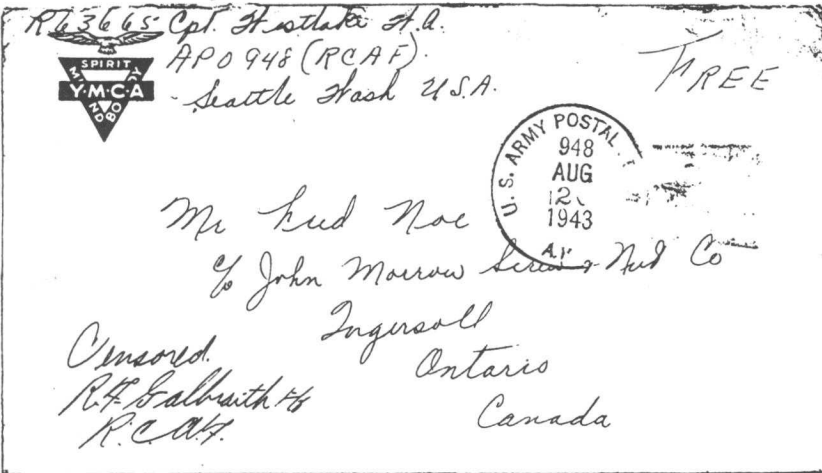 R63665 Cpl. Westlake H.A.
APO 948 (RCAF).
Seattle Wash U.S.A.
SPIRIT
MIND
Y·M·C·A
BODY
FREE
U.S. ARMY POSTAL
948
AUG
12
1943
A.
Mr Fred Noe
c/o John Morrow Screw & Nut Co
Ingersoll
Ontario
Canada
Censored.
R.F. Galbraith
R.C.A.F.